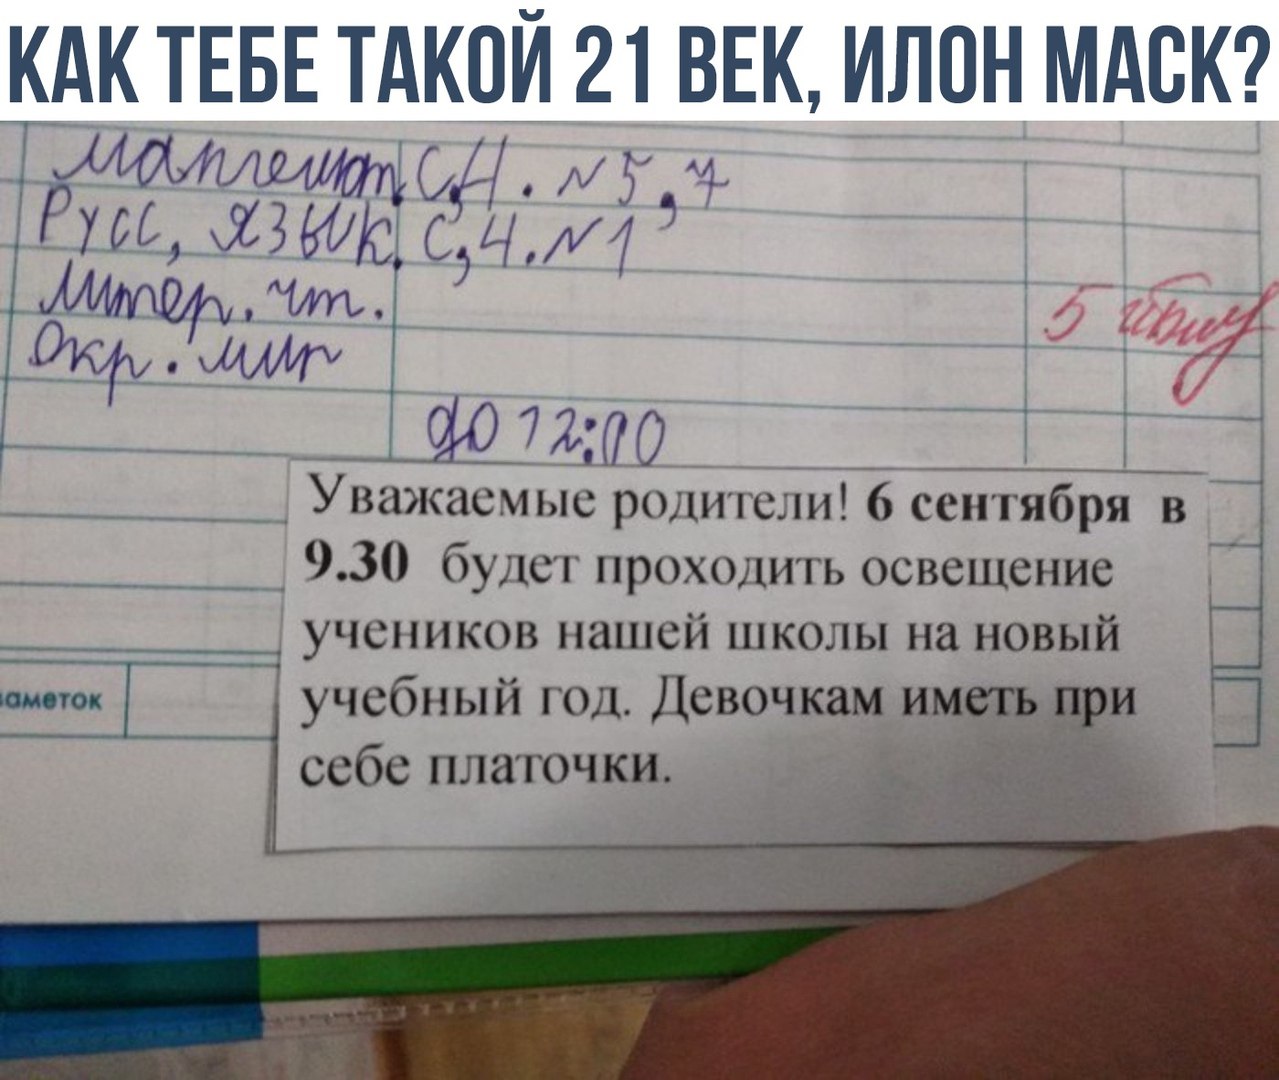 КАК ТЕБЕ ТАКОЙ 21 ВЕК, ИЛОН МАСК?
Математ. с,4. №5,7
Русс, язык. с,4.№1
Литер. чт.
5
Окр. мир
до 12:00
Уважаемые родители! 6 сентября в
9.30 будет проходить освещение
учеников нашей школы на новый
учебный год. Девочкам иметь при
себе платочки.
заметок